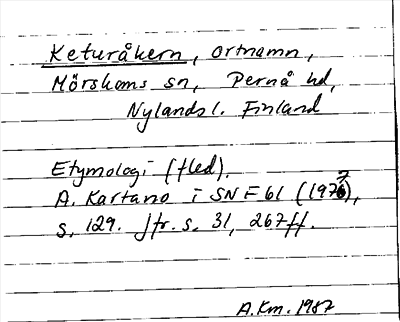 Keturåkern, ortnamn,
Mörskoms sn, Pernå hd,
Nylands l. Finland
Etymologi (fled).
A. Kartano i SNF 61 (1977),
s. 129. Jfr. s. 31, 267 ff.
A.Km. 1987